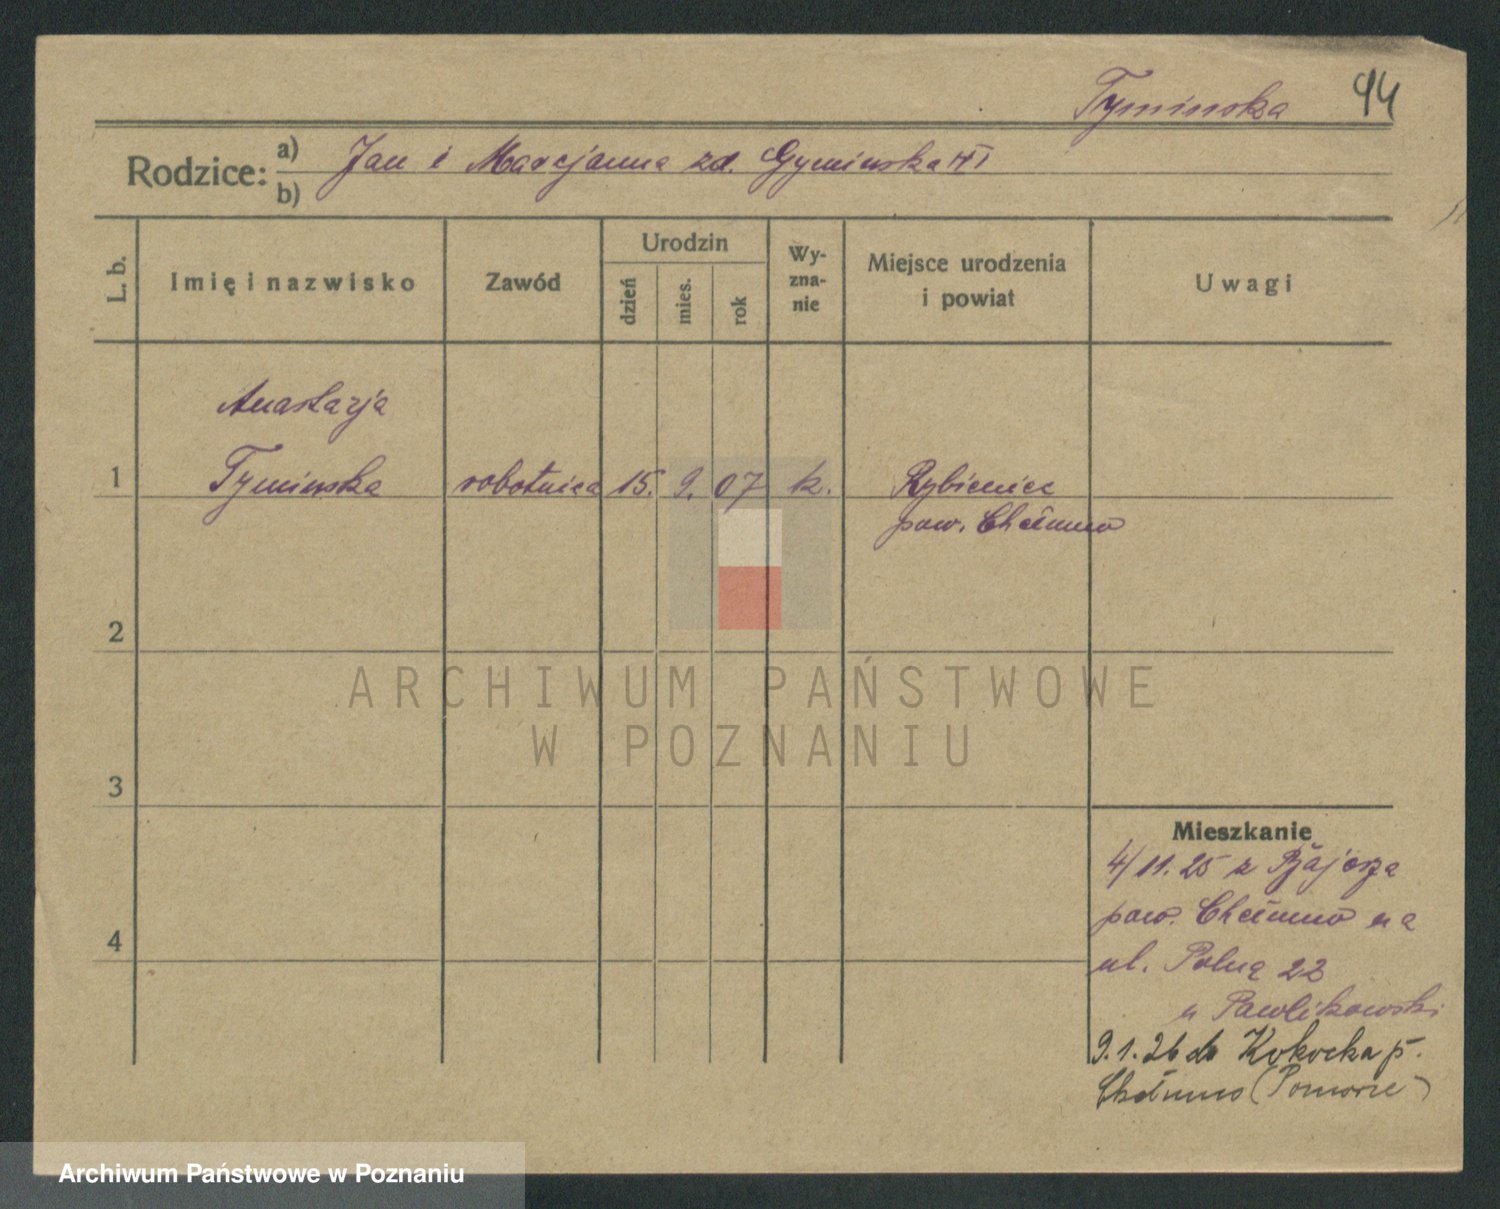 Tyminska 94
Rodzice: a) b) Jan i Marcjanna zd. Gyminska
L. b.
Imię i nazwisko
Zawód
Urodzin
dzień
mies.
rok
Wy-
zna-
nie
Miejsce urodzenia
i powiat
Uwagi
Anastazja
1 Tyminska robotnica 15. 9. 07 k. Rybieniec
pow. Chełmno
2
ARCHIWUM PAŃSTWOWE
W POZNANIU
3
Mieszkanie
4/11.25 z
pow. Chełmno na
4
ul. Polną 22
u Pawlikowski
9.1.26 do Kokocka p.
Chełmno (Pomorze)
Archiwum Państwowe w Poznaniu